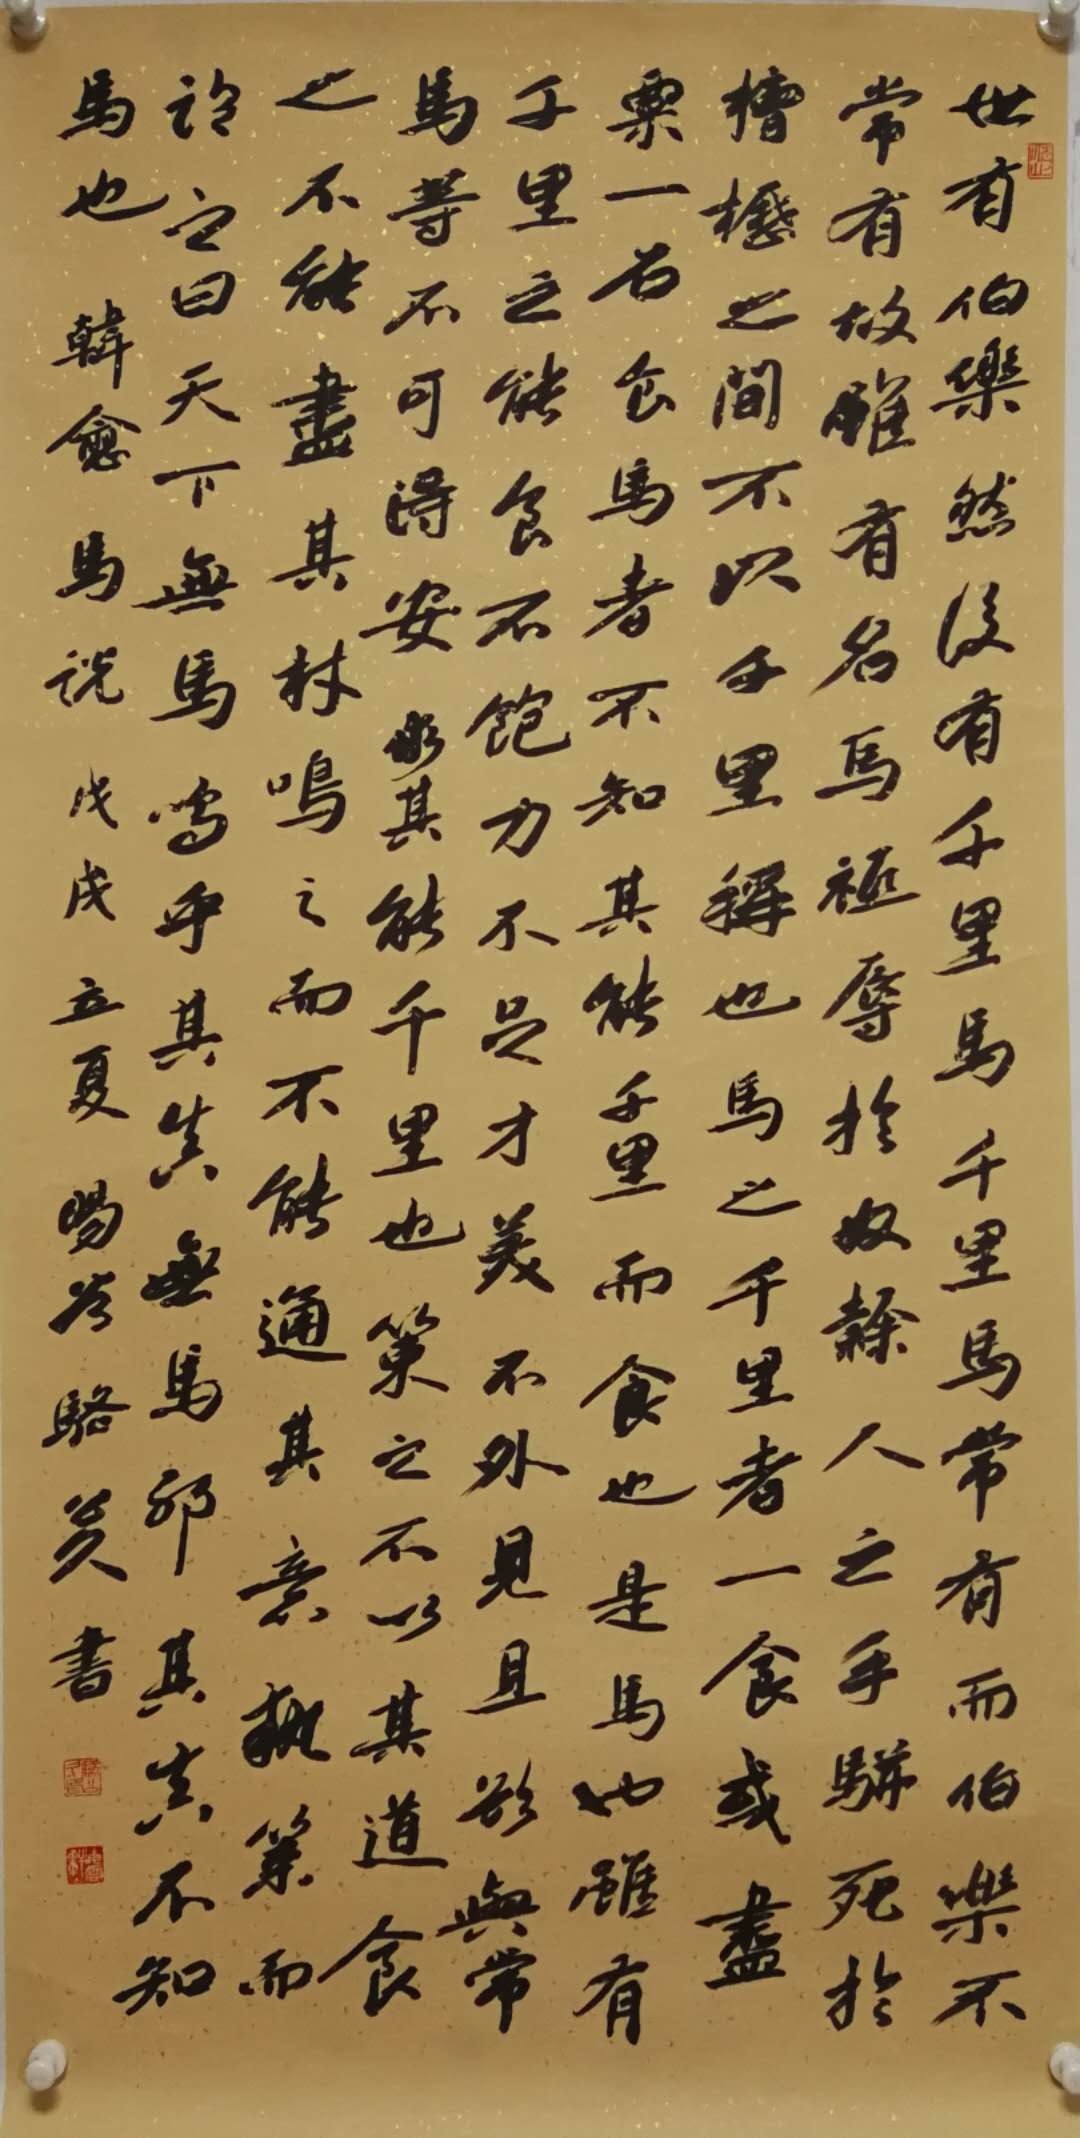 世有伯樂然後有千里馬千里馬常有而伯樂不
常有故雖有名馬祗辱於奴隸人之手駢死於
槽櫪之間不以千里稱也馬之千里者一食或盡
粟一石食馬者不知其能千里而食也是馬也雖有
千里之能食不飽力不足才美不外見且欲與常
馬等不可得安求其能千里也策之不以其道食
之不能盡其材鳴之而不能通其意執策而
臨之曰天下無馬嗚乎其真無馬邪其真不知
馬也 韓愈 馬說 戊戌立夏 駱 書